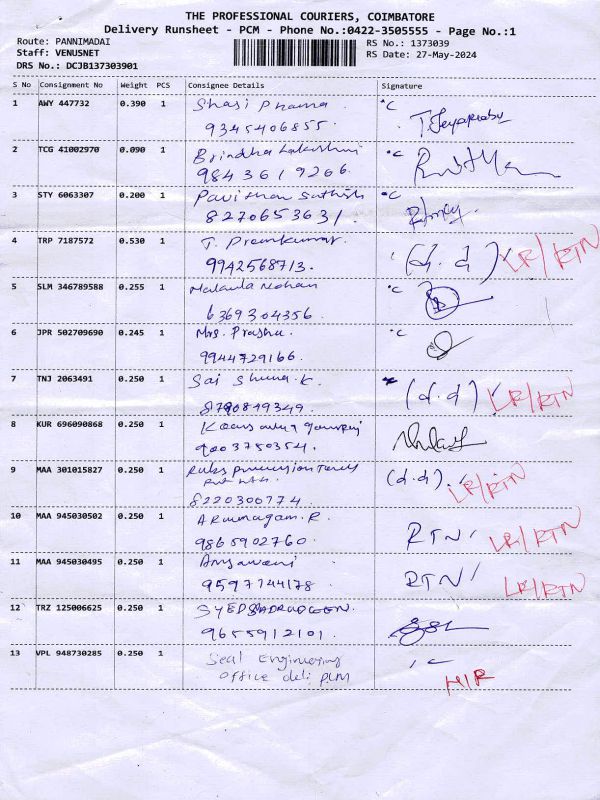 THE PROFESSIONAL COURIERS, COIMBATORE
Delivery Runsheet - PCM - Phone No.:0422-3505555 - Page No.:1
Route: PANNIMADAI
RS No.: 1373039
Staff: VENUSNET
RS Date: 27-May-2024
DRS No.: DCJB137303901
S No Consignment No Weight PCS Consignee Details Signature
1 AWY 447732 0.390 1 Shasi Phama °C
9345406855. T. Jeyaprabu
2 TCG 41002970 0.090 1 Brindha Lakshmi °C
984 361 9266.
3 STY 6063307 0.200 1 Pavithan Sathish °C
8270653631.
4 TRP 7187572 0.530 1 T. Premkumar.
9942568713. (d.d) LR/RTN
5 SLM 346789588 0.255 1 Malaula Mohan °C
6369304356
6 JPR 502709690 0.245 1 Mrs. Prabha. °C
9944729166.
7 TNJ 2063491 0.250 1 Sai K. (d.d) LR/RTN
8790849349.
8 KUR 696090868 0.250 1
9003750354.
9 MAA 301015827 0.250 1 (d.d). LR/RTN
8220300774
10 MAA 945030502 0.250 1 Arumagam. R.
9865902760. RTN/ LR/RTN
11 MAA 945030495 0.250 1
9597744178 RTN/ LR/RTN
12 TRZ 125006625 0.250 1 SYEDSADRUDEEN.
9655912101.
13 VPL 948730285 0.250 1 Seal Engineering
Office deli PCM